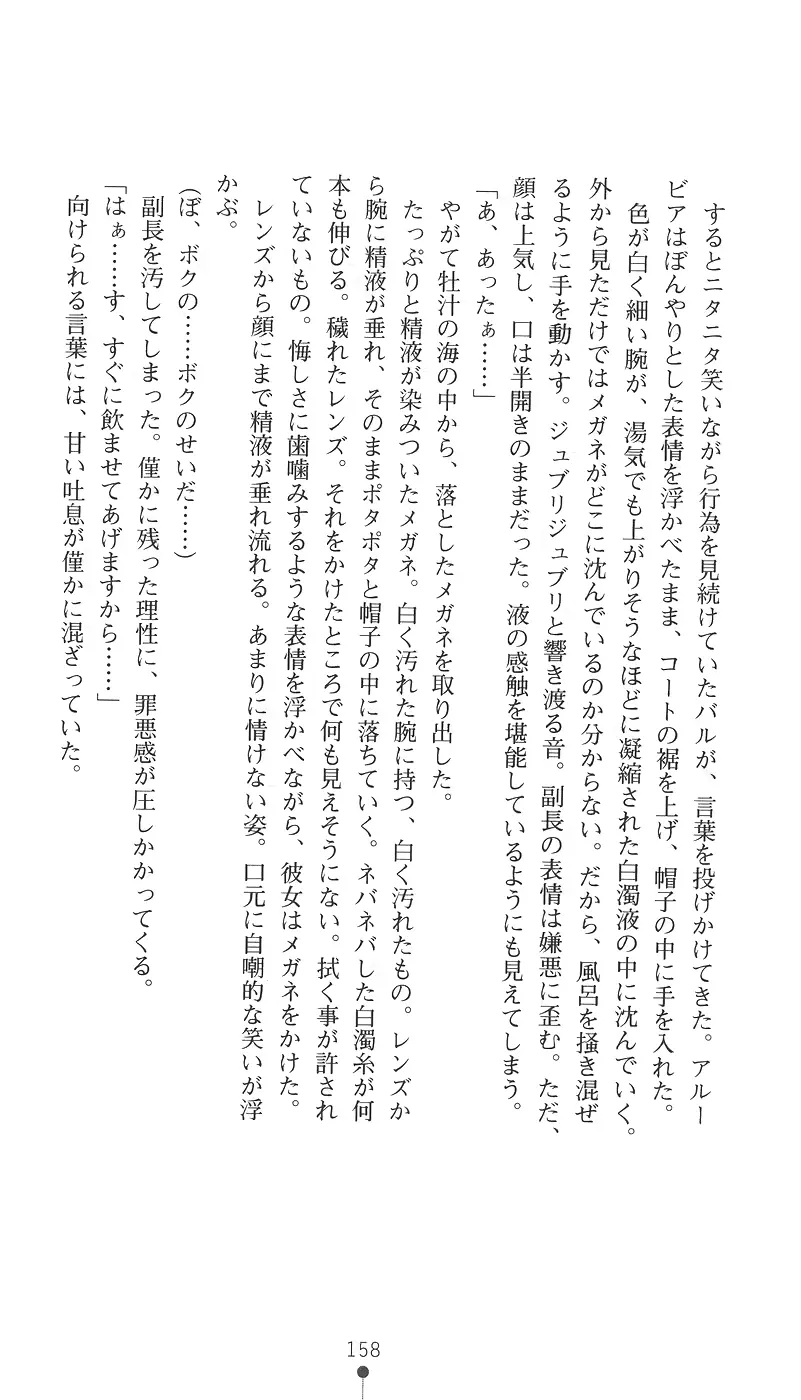 するとニタニタ笑いながら行為を見続けていたバルが、言葉を投げかけてきた。アルー
ビアはぼんやりとした表情を浮かべたまま、コートの裾を上げ、帽子の中に手を入れた。
色が白く細い腕が、湯気でも上がりそうなほどに凝縮された白濁液の中に沈んでいく。
外から見ただけではメガネがどこに沈んでいるのか分からない。だから、風呂を掻き混ぜ
るように手を動かす。ジュブリジュブリと響き渡る音。副長の表情は嫌悪に歪む。ただ、
顔は上気し、口は半開きのままだった。液の感触を堪能しているようにも見えてしまう。
「あ、あったぁ……」
やがて牡汁の海の中から、落としたメガネを取り出した。
たっぷりと精液が染みついたメガネ。白く汚れた腕に持つ、白く汚れたもの。レンズか
ら腕に精液が垂れ、そのままポタポタと帽子の中に落ちていく。ネバネバした白濁糸が何
本も伸びる。穢れたレンズ。それをかけたところで何も見えそうにない。拭く事が許され
ていないもの。悔しさに歯噛みするような表情を浮かべながら、彼女はメガネをかけた。
レンズから顔にまで精液が垂れ流れる。あまりに情けない姿。口元に自嘲的な笑いが浮
かぶ。
(ぼ、ボクの……ボクのせいだ……)
副長を汚してしまった。僅かに残った理性に、罪悪感が圧しかかってくる。
「はぁ……す、すぐに飲ませてあげますから……」
向けられる言葉には、甘い吐息が僅かに混ざっていた。
158